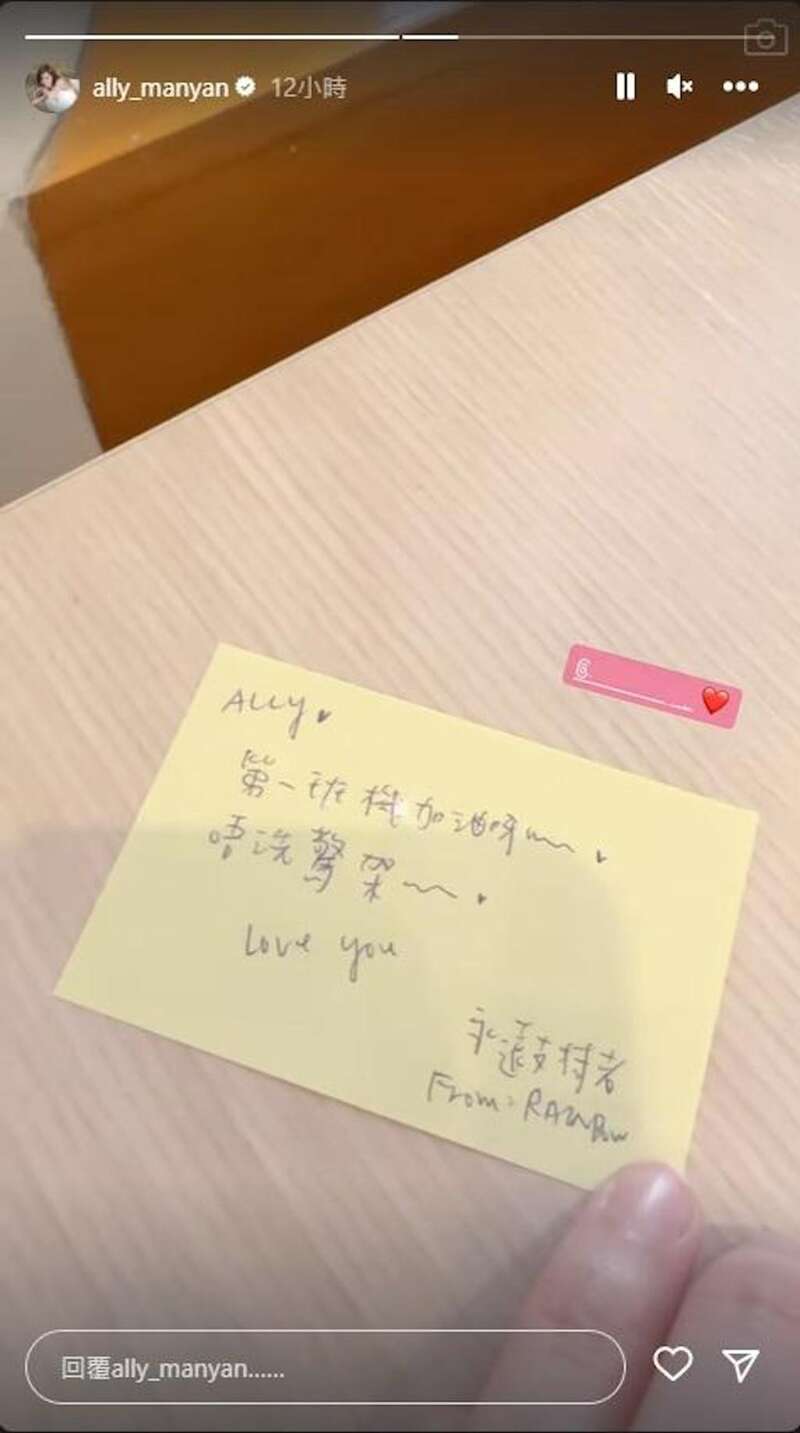 ally_manyan 12小時
ALLY
第一班機加油呀
唔洗驚架
Love you
永遠支持者
From: RAINBOW
回覆ally_manyan......